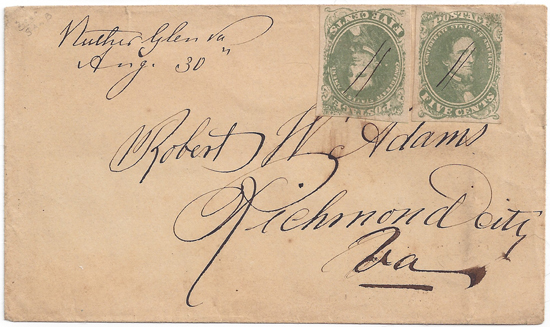 Ruther Glen Va
Aug. 30"
POSTAGE
CONFEDERATE STATES OF AMERICA
FIVE CENTS
POSTAGE
CONFEDERATE STATES OF AMERICA
FIVE CENTS
Robert W. Adams
Richmond City
Va